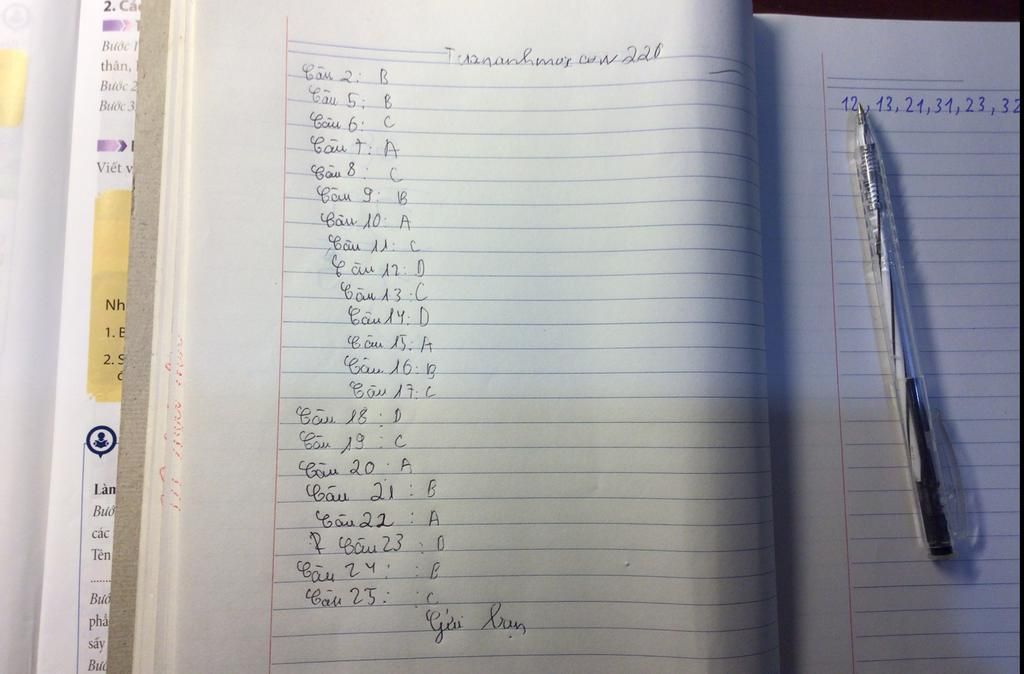 2. Cá
Bước 1
thân,
Bước 2
Bước 3
Viết v
Nh
1. B
2. S
Làn
Bướ
các
Tên
Bướ
phả
sấy
Bướ
Câu 2: B
Câu 5: B
Câu 6: C
Câu 7: A
Câu 8: C
Câu 9: B
Câu 10: A
Câu 11: C
Câu 12: D
Câu 13: C
Câu 14: D
Câu 15: A
Câu 16: B
Câu 17: C
Câu 18: D
Câu 19: C
Câu 20: A
Câu 21: B
Câu 22: A
Câu 23: D
Câu 24: B
Câu 25: C
Gửi bạn
12, 13, 21, 31, 23, 32